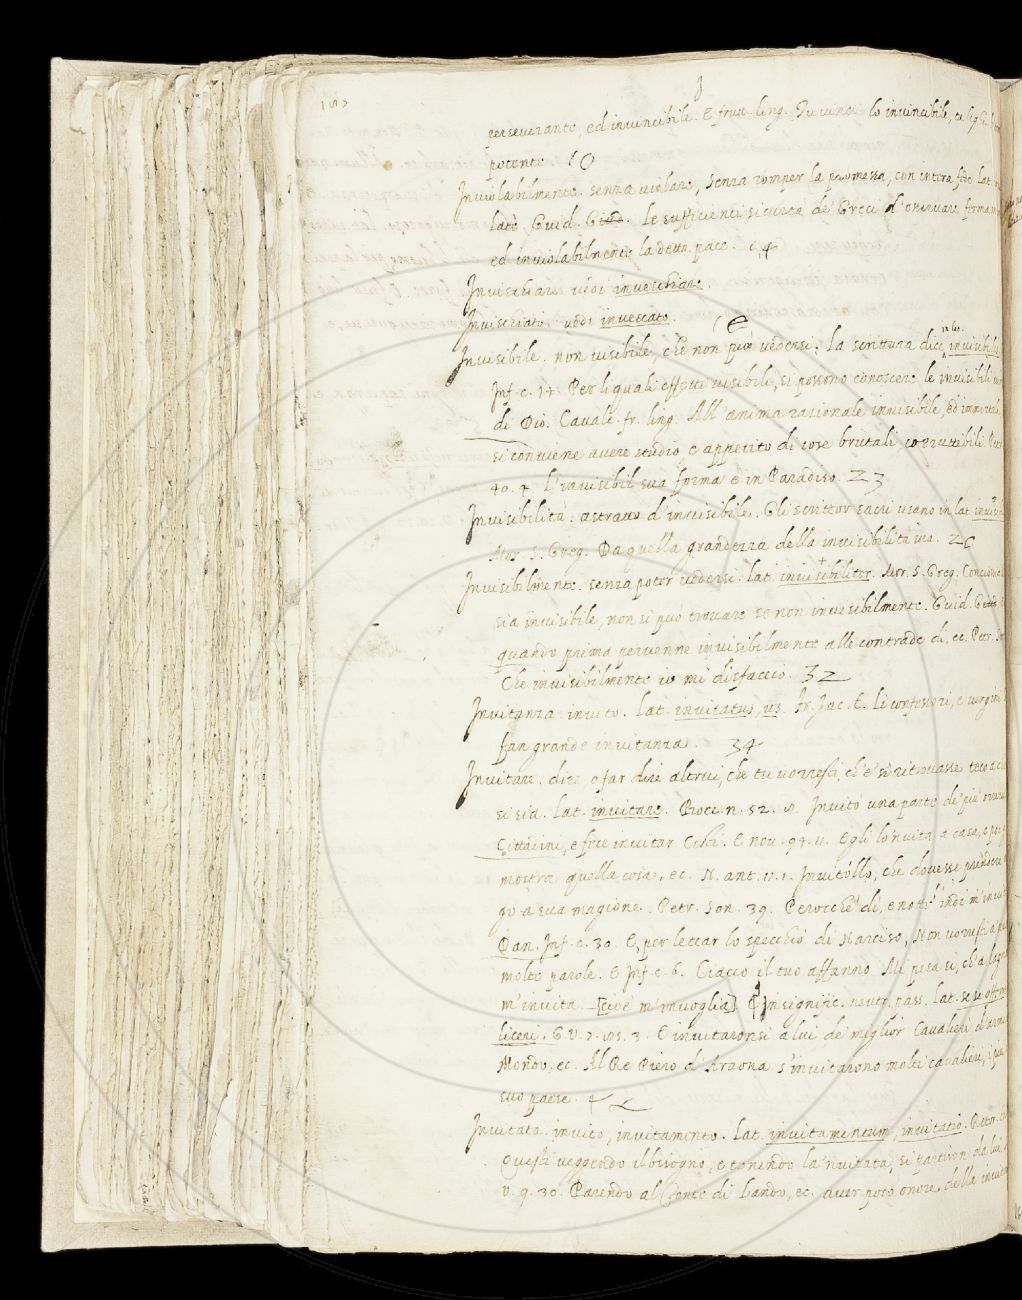 157
J
perseverante, ed invincibile. E frutt. ling. Tu vinci lo invincibile
potente 10
Inviolabilmente. senza violare, senza romper la promessa, con intera fede lat.
late. Guid. G. Le sufficienti sicurtà de' Greci d'osservare
ed inviolabilmente la detta pace. 14
Invischiare vedi inveschiare.
Invischiato vedi invescato. 16
Invisibile. non visibile, che non può vedersi. La scrittura dice in lat. invisibilis
Inf. c. 14. Per li quali effetti visibili, si possono conoscere le invisibili
di Dio. Cavalc. fr. ling. All'anima razionale invisibile, ed immortale,
si conviene avere studio e appetito di cose brutali, corruttibili. Petr.
40. 4. L'invisibil sua forma è in Paradiso. 23
Invisibilità. astratto d'invisibile. Gli scrittor sacri usano in lat.
Mor. S. Greg. Da quella grandezza della invisibilità sua. 26
Invisibilmente. senza poter vedersi. lat. invisibiliter. Mor. S. Greg.
sia invisibile, non si può trovare se non invisibilmente. Guid. G.
quando prima pervenne invisibilmente alle contrade di, ec. Petr.
Che invisibilmente io mi disfaccio. 32
Invitanza invito. Lat. invitatus, us. Fr. Jac. T. Li confessori, e vergini
fan grande invitanza. 34
Invitare. dire, o far dire altrui, che tu vorresti, ch'e' si ritrovasse teco a
si sia. Lat. invitare. Bocc. n. 52. 8. Invitò una parte de' più
Cittadini, e fece invitar Cisti. E nov. 94. 11. Egli lo 'nvita a casa, e poi
mostra quella cosa, ec. N. ant. 11. 1. Invitollo, che dovesse prendere
go a sua magione. Petr. Son. 39. Perocché dì, e notte indi m'invita
Dan. Inf. c. 30. E, per leccar lo specchio di Narciso, Non vorresti a
molte parole. E Inf. c. 6. Ciacco il tuo affanno Mi pesa sì, ch'a lagrimar
m'invita. [cioè m'invoglia] In signific. neutr. pass. lat. se se
liceri. G. V. 7. 85. 3. E invitaronsi a lui de' miglior Cavalieri d'arme
Mondo, ec. Al Re Piero d'Araona s'invitarono molti cavalieri,
suo paese. 42
Invitata invito, invitamento. Lat. invitamentum, invitatio.
Questi veggendo il bisogno, e tenendo la 'nvitata, si partiron da lui.
v. 9. 30. Parendo al Conte di Lando, ec. aver poco onore della